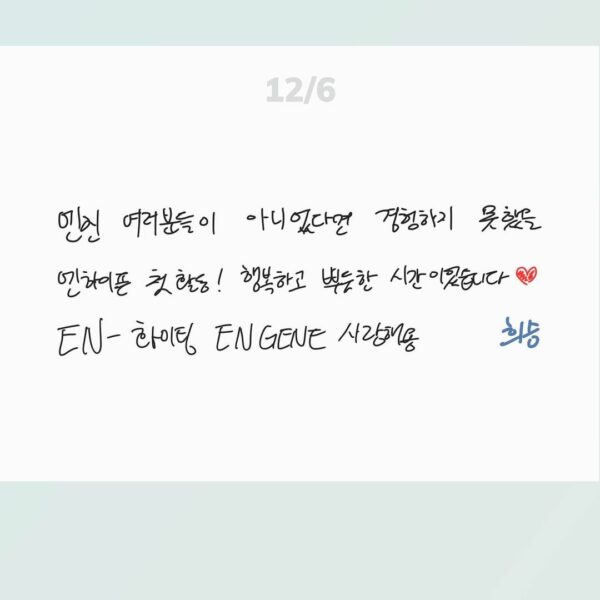 12/6
엔진 여러분들이 아니었다면 경험하기 못했을
엔하이픈 첫 활동! 행복하고 뿌듯한 시간이었습니다
EN- 화이팅 ENGENE 사랑해용 희승